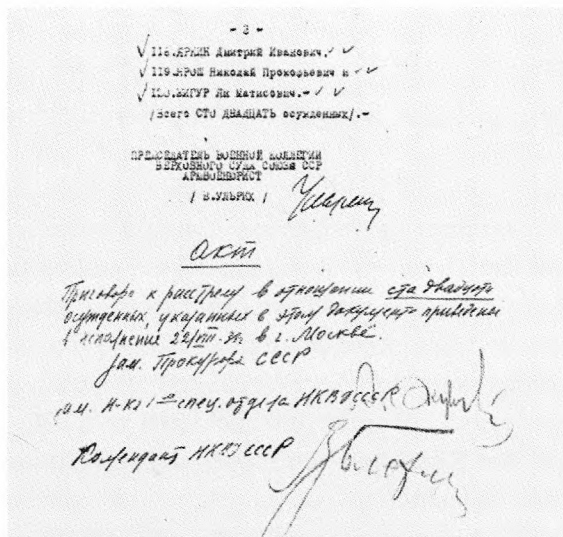 - 3 -
118.ЯРКИН Дмитрий Иванович.
119.ЯРОШ Николай Прокофьевич и
120.ЖИГУР Ян Матисович.-
/Всего СТО ДВАДЦАТЬ осужденных/.-
ПРЕДСЕДАТЕЛЬ ВОЕННОЙ КОЛЛЕГИИ
ВЕРХОВНОГО СУДА СОЮЗА ССР
АРМВОЕНЮРИСТ
/ В.УЛЬРИХ /
Акт
Приговора к расстрелу в отношении ста двадцати
осужденных, указанных в этом документе приведены
в исполнение 22/VIII- в г. Москве.
Зам. Прокурора СССР
Зам. н-ка 1го спец. отдела НКВД СССР
Комендант НКВД СССР